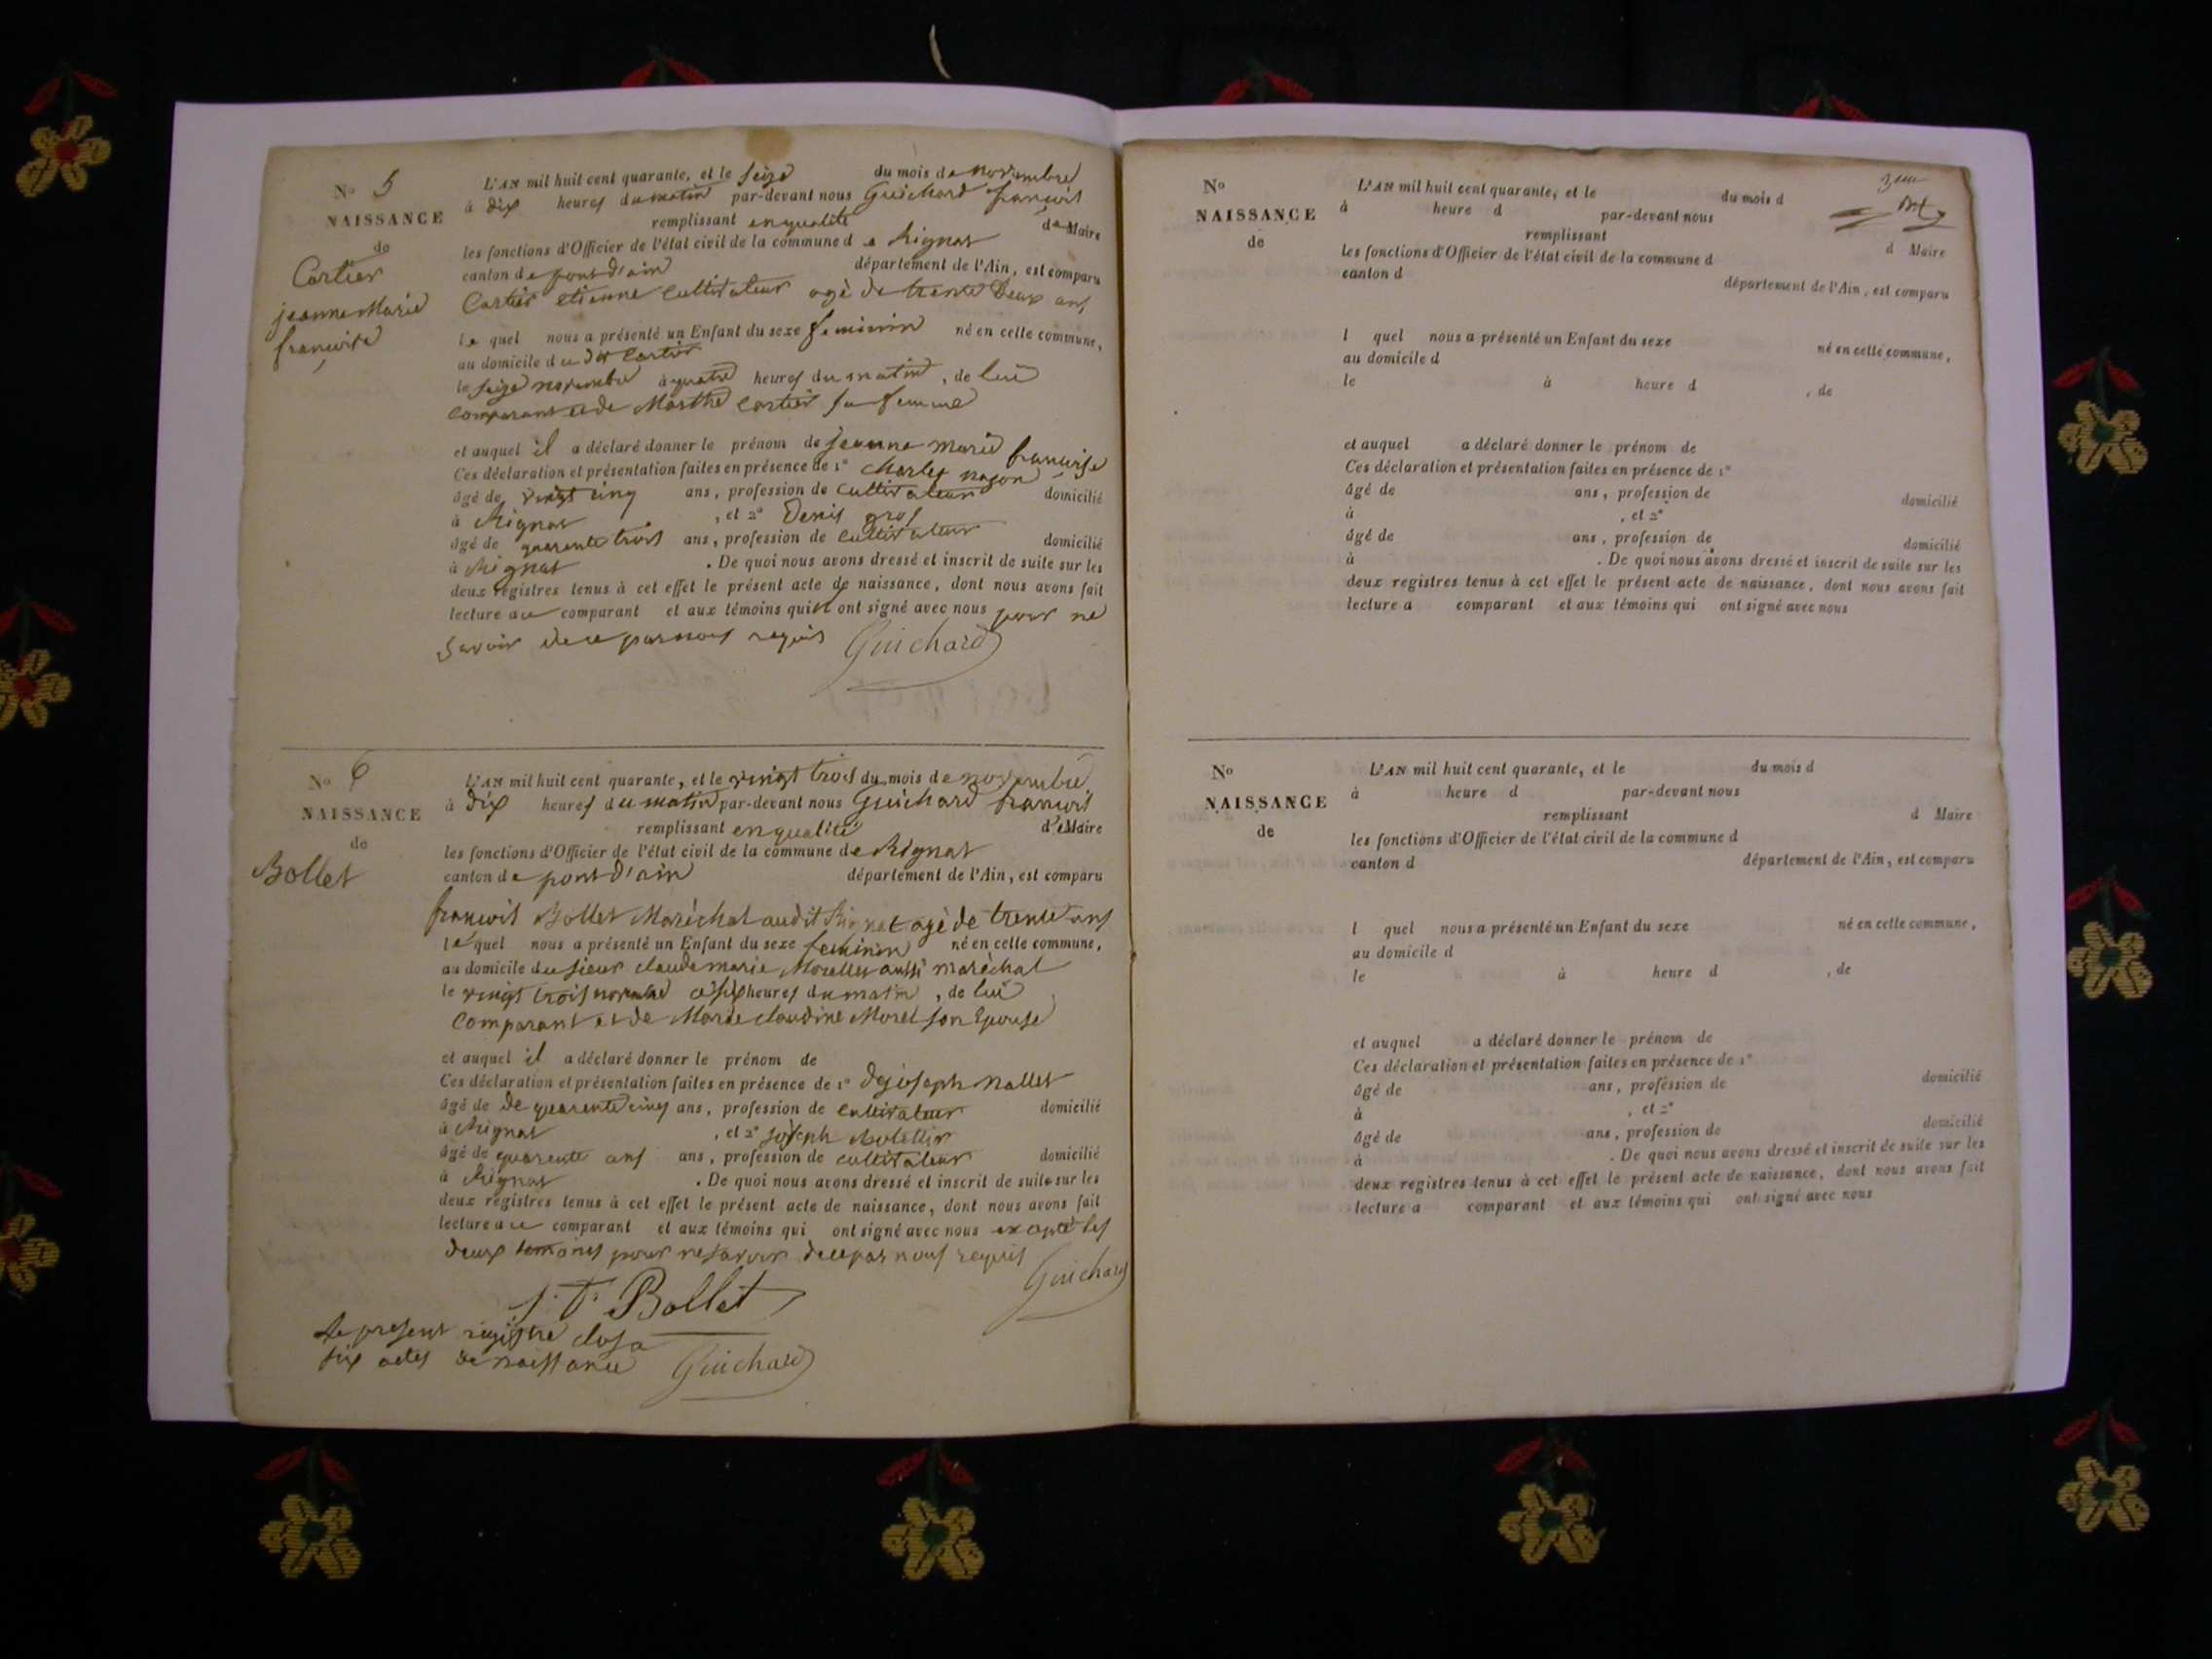 No 5
NAISSANCE
de
Cartier
jeanne Marie
françoise
L'AN mil huit cent quarante, et le seize du mois de novembre
à dix heures du matin par-devant nous Guichard françois
remplissant en qualité de Maire
les fonctions d'Officier de l'état civil de la commune de Rignat
canton de pont d'ain département de l'Ain, est comparu
Cartier etienne Cultivateur agé de trente deux ans
le quel nous a présenté un Enfant du sexe feminin né en cette commune,
au domicile du dit Cartier
le seize novembre à quatre heures du matin, de lui
comparant et de Marthe Cartier sa femme
et auquel il a déclaré donner le prénom de jeanne marie françoise
Ces déclaration et présentation faites en présence de 1° Charles
âgé de vingt cinq ans, profession de Cultivateur domicilié
à Rignat, et 2° Denis gros
âgé de quarente trois ans, profession de Cultivateur domicilié
à Rignat. De quoi nous avons dressé et inscrit de suite sur les
deux registres tenus à cet effet le présent acte de naissance, dont nous avons fait
lecture au comparant et aux témoins qui n'ont signé avec nous pour ne
savoir de ce par nous requis Guichard
No 6
NAISSANCE
de
Bollet
L'AN mil huit cent quarante, et le vingt trois du mois de novembre
à dix heures du matin par-devant nous Guichard françois
remplissant en qualité de Maire
les fonctions d'Officier de l'état civil de la commune de Rignat
canton de pont d'ain département de l'Ain, est comparu
françois Bollet Maréchal audit Rignat agé de trente ans
le quel nous a présenté un Enfant du sexe feminin né en cette commune,
au domicile du sieur claude marie aussi maréchal
le vingt trois novembre à six heures du matin, de lui
Comparant et de Marie claudine Morel son Epouse
et auquel il a déclaré donner le prénom de
Ces déclaration et présentation faites en présence de 1° de joseph Nallet
âgé de de quarente cinq ans, profession de Cultivateur domicilié
à Rignat, et 2° joseph
âgé de quarente ans ans, profession de cultivateur domicilié
à Rignat. De quoi nous avons dressé et inscrit de suite sur les
deux registres tenus à cet effet le présent acte de naissance, dont nous avons fait
lecture au comparant et aux témoins qui ont signé avec nous excepté les
deux temoins pour ne savoir de ce par nous requis
Guichard
Bollet
Le present registre clos a
six actes de naissance Guichard
No
NAISSANCE
de
L'AN mil huit cent quarante, et le du mois d
à heure d par-devant nous
remplissant d Maire
les fonctions d'Officier de l'état civil de la commune d
canton d département de l'Ain, est comparu
l quel nous a présenté un Enfant du sexe né en cette commune,
au domicile d
le à heure d , de
et auquel a déclaré donner le prénom de
Ces déclaration et présentation faites en présence de 1°
âgé de ans, profession de domicilié
à , et 2°
âgé de ans, profession de domicilié
à . De quoi nous avons dressé et inscrit de suite sur les
deux registres tenus à cet effet le présent acte de naissance, dont nous avons fait
lecture a comparant et aux témoins qui ont signé avec nous
No
NAISSANCE
de
L'AN mil huit cent quarante, et le du mois d
à heure d par-devant nous
remplissant d Maire
les fonctions d'Officier de l'état civil de la commune d
canton d département de l'Ain, est comparu
l quel nous a présenté un Enfant du sexe né en cette commune,
au domicile d
le à heure d , de
et auquel a déclaré donner le prénom de
Ces déclaration et présentation faites en présence de 1°
âgé de ans, profession de domicilié
à , et 2°
âgé de ans, profession de domicilié
à . De quoi nous avons dressé et inscrit de suite sur les
deux registres tenus à cet effet le présent acte de naissance, dont nous avons fait
lecture a comparant et aux témoins qui ont signé avec nous